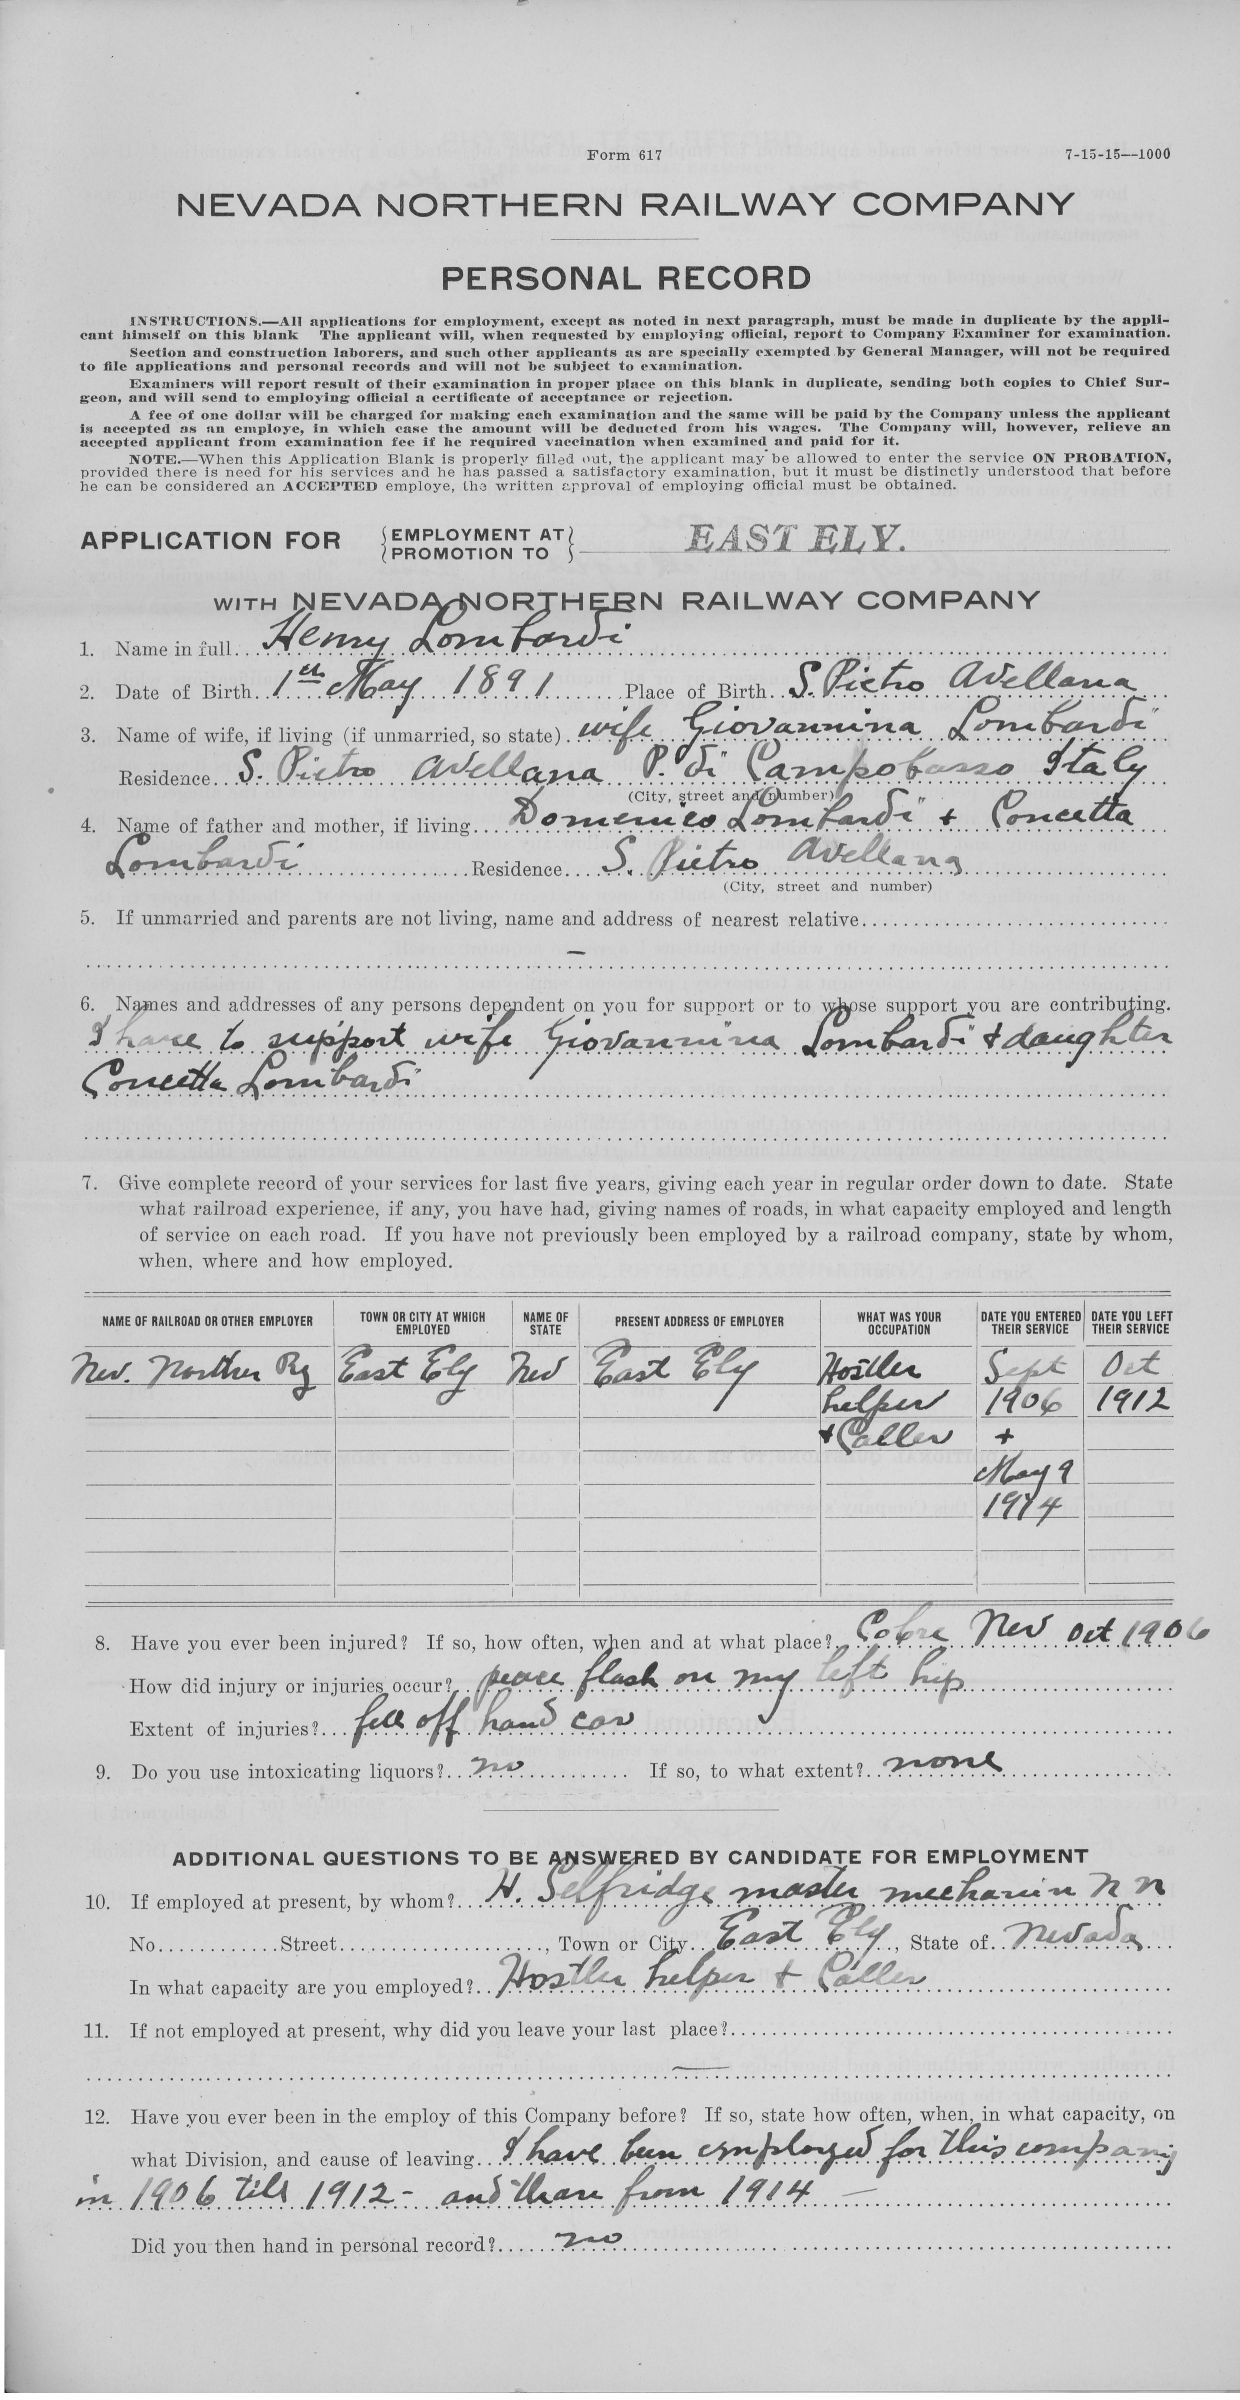 Form 617 7-15-15—1000
NEVADA NORTHERN RAILWAY COMPANY
PERSONAL RECORD
INSTRUCTIONS.—All applications for employment, except as noted in next paragraph, must be made in duplicate by the appli-
cant himself on this blank The applicant will, when requested by employing official, report to Company Examiner for examination.
Section and construction laborers, and such other applicants as are specially exempted by General Manager, will not be required
to file applications and personal records and will not be subject to examination.
Examiners will report result of their examination in proper place on this blank in duplicate, sending both copies to Chief Sur-
geon, and will send to employing official a certificate of acceptance or rejection.
A fee of one dollar will be charged for making each examination and the same will be paid by the Company unless the applicant
is accepted as an employe, in which case the amount will be deducted from his wages. The Company will, however, relieve an
accepted applicant from examination fee if he required vaccination when examined and paid for it.
NOTE.—When this Application Blank is properly filled out, the applicant may be allowed to enter the service ON PROBATION,
provided there is need for his services and he has passed a satisfactory examination, but it must be distinctly understood that before
he can be considered an ACCEPTED employe, the written approval of employing official must be obtained.
APPLICATION FOR {EMPLOYMENT AT} {PROMOTION TO} EAST ELY.
WITH NEVADA NORTHERN RAILWAY COMPANY
1. Name in full Henry Lombardi
2. Date of Birth 1th May 1891 Place of Birth S. Pietro Avellana
3. Name of wife, if living (if unmarried, so state) wife Giovannina Lombardi
Residence S. Pietro Avellana P. di Campobasso Italy
(City, street and number)
4. Name of father and mother, if living Domenico Lombardi + Concetta
Lombardi Residence S. Pietro Avellana
(City, street and number)
5. If unmarried and parents are not living, name and address of nearest relative
—
6. Names and addresses of any persons dependent on you for support or to whose support you are contributing.
I have to support wife Giovannina Lombardi + daughter
Concetta Lombardi
7. Give complete record of your services for last five years, giving each year in regular order down to date. State
what railroad experience, if any, you have had, giving names of roads, in what capacity employed and length
of service on each road. If you have not previously been employed by a railroad company, state by whom,
when, where and how employed.
NAME OF RAILROAD OR OTHER EMPLOYER TOWN OR CITY AT WHICH EMPLOYED NAME OF STATE PRESENT ADDRESS OF EMPLOYER WHAT WAS YOUR OCCUPATION DATE YOU ENTERED THEIR SERVICE DATE YOU LEFT THEIR SERVICE
Nev. Northern Ry East Ely Nev East Ely Hostler Sept Oct
helper 1906 1912
+ Caller +
May 9
1914
8. Have you ever been injured? If so, how often, when and at what place? Cobre Nev Oct 1906
How did injury or injuries occur? peace flash on my left hip
Extent of injuries? fell off hand car
9. Do you use intoxicating liquors? no If so, to what extent? none
ADDITIONAL QUESTIONS TO BE ANSWERED BY CANDIDATE FOR EMPLOYMENT
10. If employed at present, by whom? H. Selfridge master mechanin N N
No. Street , Town or City East Ely , State of Nevada
In what capacity are you employed? Hostler helper + Caller
11. If not employed at present, why did you leave your last place?
—
12. Have you ever been in the employ of this Company before? If so, state how often, when, in what capacity, on
what Division, and cause of leaving I have been employed for this company
in 1906 till 1912 - and from 1914 —
Did you then hand in personal record? no